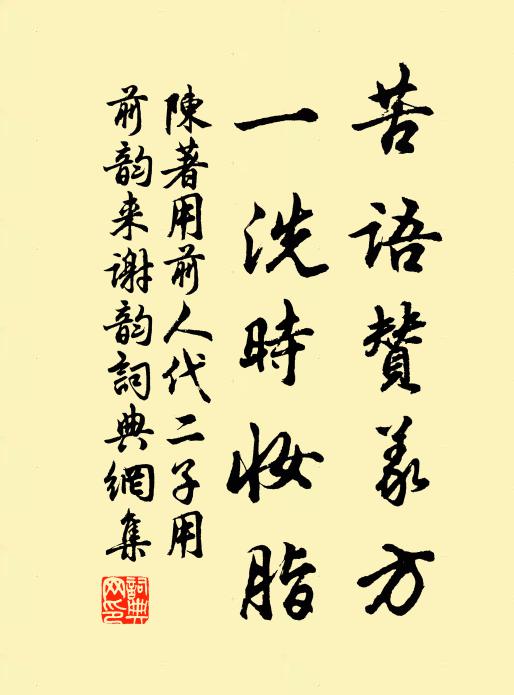 苦语赞义方
一洗時妆脂
陳著用前人代二子用
前韵来谢韵詞典網集
詞典網印